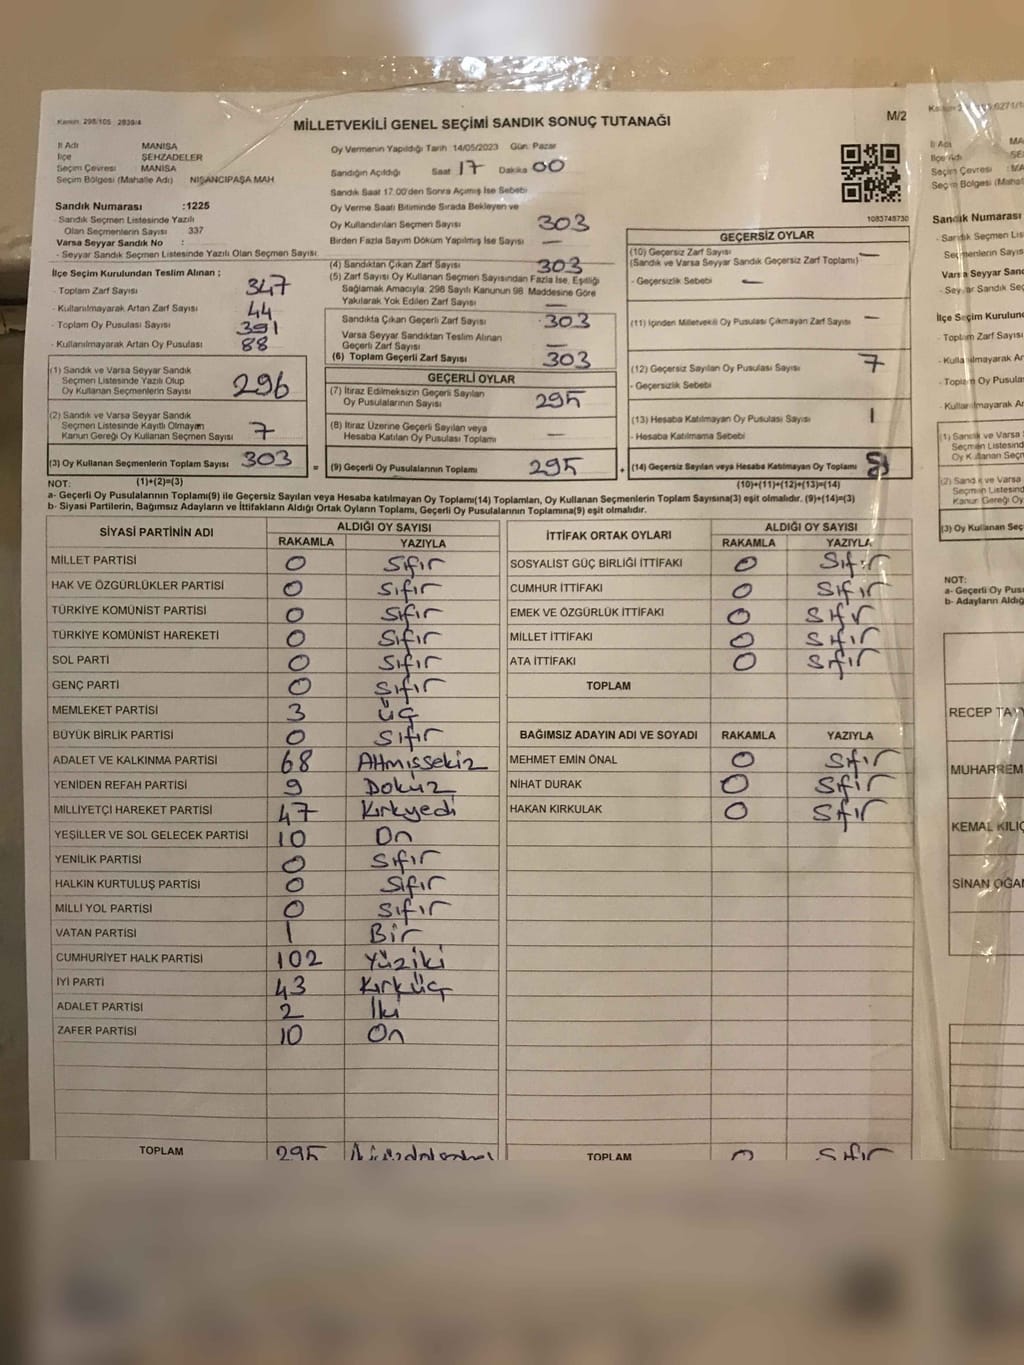 Kanun: 298/105 2839/4
M/2
MİLLETVEKİLİ GENEL SEÇİMİ SANDIK SONUÇ TUTANAĞI
İl Adı MANİSA
İlçe ŞEHZADELER
Seçim Çevresi MANİSA
Seçim Bölgesi (Mahalle Adı) NİŞANCIPAŞA MAH
Sandık Numarası :1225
- Sandık Seçmen Listesinde Yazılı
Olan Seçmenlerin Sayısı 337
Varsa Seyyar Sandık No :
- Seyyar Sandık Seçmen Listesinde Yazılı Olan Seçmen Sayısı:
İlçe Seçim Kurulundan Teslim Alınan ;
- Toplam Zarf Sayısı 347
- Kullanılmayarak Artan Zarf Sayısı 44
- Toplam Oy Pusulası Sayısı 391
- Kullanılmayarak Artan Oy Pusulası 88
(1) Sandık ve Varsa Seyyar Sandık
Seçmen Listesinde Yazılı Olup
Oy Kullanan Seçmenlerin Sayısı 296
(2) Sandık ve Varsa Seyyar Sandık
Seçmen Listesinde Kayıtlı Olmayan
Kanun Gereği Oy Kullanan Seçmen Sayısı 7
(3) Oy Kullanan Seçmenlerin Toplam Sayısı 303
Oy Vermenin Yapıldığı Tarih :14/05/2023 Gün: Pazar
Sandığın Açıldığı Saat 17 Dakika 00
Sandık Saat 17:00'den Sonra Açılmış İse Sebebi
Oy Verme Saati Bitiminde Sırada Bekleyen ve
Oy Kullandırılan Seçmen Sayısı 303
Birden Fazla Sayım Döküm Yapılmış İse Sayısı —
(4) Sandıktan Çıkan Zarf Sayısı 303
(5) Zarf Sayısı Oy Kullanan Seçmen Sayısından Fazla İse, Eşitliği
Sağlamak Amacıyla, 298 Sayılı Kanunun 98. Maddesine Göre
Yakılarak Yok Edilen Zarf Sayısı —
Sandıkta Çıkan Geçerli Zarf Sayısı 303
Varsa Seyyar Sandıktan Teslim Alınan
Geçerli Zarf Sayısı —
(6) Toplam Geçerli Zarf Sayısı 303
GEÇERLİ OYLAR
(7) İtiraz Edilmeksizin Geçerli Sayılan
Oy Pusulalarının Sayısı 295
(8) İtiraz Üzerine Geçerli Sayılan veya
Hesaba Katılan Oy Pusulası Toplamı —
= (9) Geçerli Oy Pusulalarının Toplamı 295
1083748730
GEÇERSİZ OYLAR
(10) Geçersiz Zarf Sayısı —
(Sandık ve Varsa Seyyar Sandık Geçersiz Zarf Toplamı)
- Geçersizlik Sebebi —
(11) İçinden Milletvekili Oy Pusulası Çıkmayan Zarf Sayısı —
(12) Geçersiz Sayılan Oy Pusulası Sayısı 7
- Geçersizlik Sebebi
(13) Hesaba Katılmayan Oy Pusulası Sayısı 1
- Hesaba Katılmama Sebebi
+ (14) Geçersiz Sayılan veya Hesaba Katılmayan Oy Toplamı
NOT: (1)+(2)=(3) (10)+(11)+(12)+(13)=(14)
a- Geçerli Oy Pusulalarının Toplamı(9) ile Geçersiz Sayılan veya Hesaba katılmayan Oy Toplamı(14) Toplamları, Oy Kullanan Seçmenlerin Toplam Sayısına(3) eşit olmalıdır. (9)+(14)=(3)
b- Siyasi Partilerin, Bağımsız Adayların ve İttifakların Aldığı Ortak Oyların Toplamı, Geçerli Oy Pusulalarının Toplamına(9) eşit olmalıdır.
SİYASİ PARTİNİN ADI ALDIĞI OY SAYISI
RAKAMLA YAZIYLA
MİLLET PARTİSİ 0 Sıfır
HAK VE ÖZGÜRLÜKLER PARTİSİ 0 Sıfır
TÜRKİYE KOMÜNİST PARTİSİ 0 Sıfır
TÜRKİYE KOMÜNİST HAREKETİ 0 Sıfır
SOL PARTİ 0 Sıfır
GENÇ PARTİ 0 Sıfır
MEMLEKET PARTİSİ 3 üç
BÜYÜK BİRLİK PARTİSİ 0 Sıfır
ADALET VE KALKINMA PARTİSİ 68 Altmışsekiz
YENİDEN REFAH PARTİSİ 9 Dokuz
MİLLİYETÇİ HAREKET PARTİSİ 47 Kırkyedi
YEŞİLLER VE SOL GELECEK PARTİSİ 10 On
YENİLİK PARTİSİ 0 Sıfır
HALKIN KURTULUŞ PARTİSİ 0 Sıfır
MİLLİ YOL PARTİSİ 0 Sıfır
VATAN PARTİSİ 1 Bir
CUMHURİYET HALK PARTİSİ 102 Yüziki
İYİ PARTİ 43 Kırküç
ADALET PARTİSİ 2 İki
ZAFER PARTİSİ 10 On
TOPLAM 295
İTTİFAK ORTAK OYLARI ALDIĞI OY SAYISI
RAKAMLA YAZIYLA
SOSYALİST GÜÇ BİRLİĞİ İTTİFAKI 0 Sıfır
CUMHUR İTTİFAKI 0 Sıfır
EMEK VE ÖZGÜRLÜK İTTİFAKI 0 Sıfır
MİLLET İTTİFAKI 0 Sıfır
ATA İTTİFAKI 0 Sıfır
TOPLAM
BAĞIMSIZ ADAYIN ADI VE SOYADI RAKAMLA YAZIYLA
MEHMET EMİN ÖNAL 0 Sıfır
NİHAT DURAK 0 Sıfır
HAKAN KIRKULAK 0 Sıfır
TOPLAM 0 Sıfır
İl Adı MA
İlçe Adı ŞE
Seçim Çevresi : MA
Seçim Bölgesi (Mahalle
Sandık Numarası
- Sandık Seçmen Lis
Seçmenlerin Sayısı
Varsa Seyyar Sand
- Seyyar Sandık Seç
İlçe Seçim Kurulund
- Toplam Zarf Sayısı
- Toplam Oy Pusula
(1) Sandık ve Varsa
Seçmen Listesind
Oy Kullanan Seçm
(2) Sandık ve Varsa
Seçmen Listesin
Kanun Gereği Oy
(3) Oy Kullanan Seç
NOT:
a- Geçerli Oy Pusu
b- Adayların Aldığ
RECEP TAYY
MUHARREM
KEMAL KILIÇ
SİNAN OĞAN